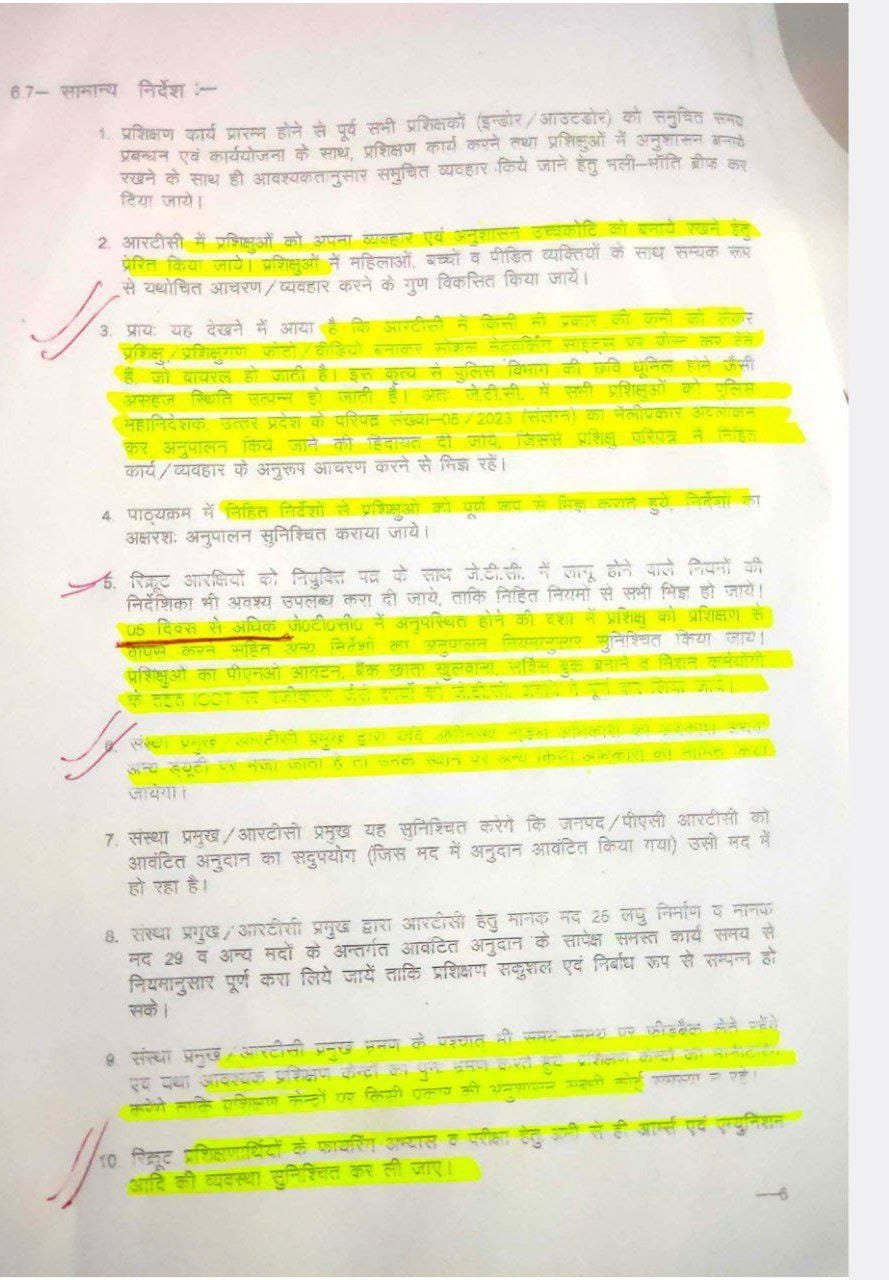 67– सामान्य निर्देश :–
1. प्रशिक्षण कार्य प्रारम्भ होने से पूर्व सभी प्रशिक्षकों (इन्डोर/आउटडोर) को समुचित समय
प्रबन्धन एवं कार्ययोजना के साथ, प्रशिक्षण कार्य करने तथा प्रशिक्षुओं में अनुशासन बनाये
रखने के साथ ही आवश्यकतानुसार समुचित व्यवहार किये जाने हेतु भली–भाँति ब्रीफ कर
दिया जाये।
2. आरटीसी में प्रशिक्षुओं को अपना व्यवहार एवं अनुशासन उच्चकोटि को बनाये रखने हेतु
प्रेरित किया जाये। प्रशिक्षुओं में महिलाओं, बच्चों व पीडित व्यक्तियों के साथ सम्यक रूप
से यथोचित आचरण/व्यवहार करने के गुण विकसित किया जायें।
3. प्रायः यह देखने में आया है कि आरटीसी में किसी भी प्रकार की कमी को लेकर
प्रशिक्षु/प्रशिक्षुगण फोटो/वीडियो बनाकर सोशल नेटवर्किंग साइट्स पर पोस्ट कर देते
हैं, जो वायरल हो जाती है। इस कृत्य से पुलिस विभाग की छवि धूमिल होने जैसी
असहज स्थिति उत्पन्न हो जाती है। अतः जे.टी.सी. में सभी प्रशिक्षुओं को पुलिस
महानिदेशक, उत्तर प्रदेश के परिपत्र संख्या–05/2023 (संलग्न) का भलीप्रकार अवलोकन
कर अनुपालन किये जाने की हिदायत दी जाये, जिससे प्रशिक्षु परिपत्र में निहित
कार्य/व्यवहार के अनुरूप आचरण करने से भिज्ञ रहें।
4. पाठ्यक्रम में निहित निर्देशों से प्रशिक्षुओं को पूर्ण रूप से भिज्ञ कराते हुये, निर्देशों का
अक्षरशः अनुपालन सुनिश्चित कराया जाये।
5. रिक्रूट आरक्षियों को नियुक्ति पत्र के साथ जे.टी.सी. में लागू होने वाले नियमों की
निर्देशिका भी अवश्य उपलब्ध करा दी जाये, ताकि निहित नियमो से सभी भिज्ञ हो जाये।
05 दिवस से अधिक जे0टी0सी0 में अनुपस्थित होने की दशा में प्रशिक्षु को प्रशिक्षण से
वापस करने सहित अन्य निर्देशों का अनुपालन नियमानुसार सुनिश्चित किया जाय।
प्रशिक्षुओं का पीएनओ आवंटन, बैंक खाता खुलवाना, सर्विस बुक बनाने व मिशन कर्मयोगी
के तहत पर पंजीकरण जैसे कार्यों को जे.टी.सी. अवधि में पूर्ण कर लिया जाये।
6. संस्था प्रमुख/आरटीसी प्रमुख द्वारा यदि
अन्य ड्यूटी पर भेजा जाता है तो उनके स्थान पर अन्य किसी अधिकारी को नामित किया
जायेगा।
7. संस्था प्रमुख/आरटीसी प्रमुख यह सुनिश्चित करेगें कि जनपद/पीएसी आरटीसी को
आवंटित अनुदान का सदुपयोग (जिस मद में अनुदान आवंटित किया गया) उसी मद में
हो रहा है।
8. संस्था प्रमुख/आरटीसी प्रमुख द्वारा आरटीसी हेतु मानक मद 25 लघु निर्माण व मानक
मद 29 व अन्य मदों के अन्तर्गत आवंटित अनुदान के सापेक्ष समस्त कार्य समय से
नियमानुसार पूर्ण करा लिये जायें ताकि प्रशिक्षण सकुशल एवं निर्बाध रूप से सम्पन्न हो
सके।
9. संस्था प्रमुख/आरटीसी प्रमुख भ्रमण के पश्चात भी समय–समय पर फीडबैक लेते रहेंगे
एवं यथा आवश्यक प्रशिक्षण केन्द्रों का पुनः भ्रमण करते हुये प्रशिक्षण केन्द्रों की मानीटरिंग
करेंगे ताकि प्रशिक्षण केन्द्रों पर किसी प्रकार की अनुशासन सम्बंधी कोई समस्या न रहे।
10. रिक्रूट प्रशिक्षणार्थियों के फायरिंग अभ्यास व परीक्षा हेतु अभी से ही आर्म्स एवं एम्युनिशन
आदि की व्यवस्था सुनिश्चित कर ली जाए।
—6